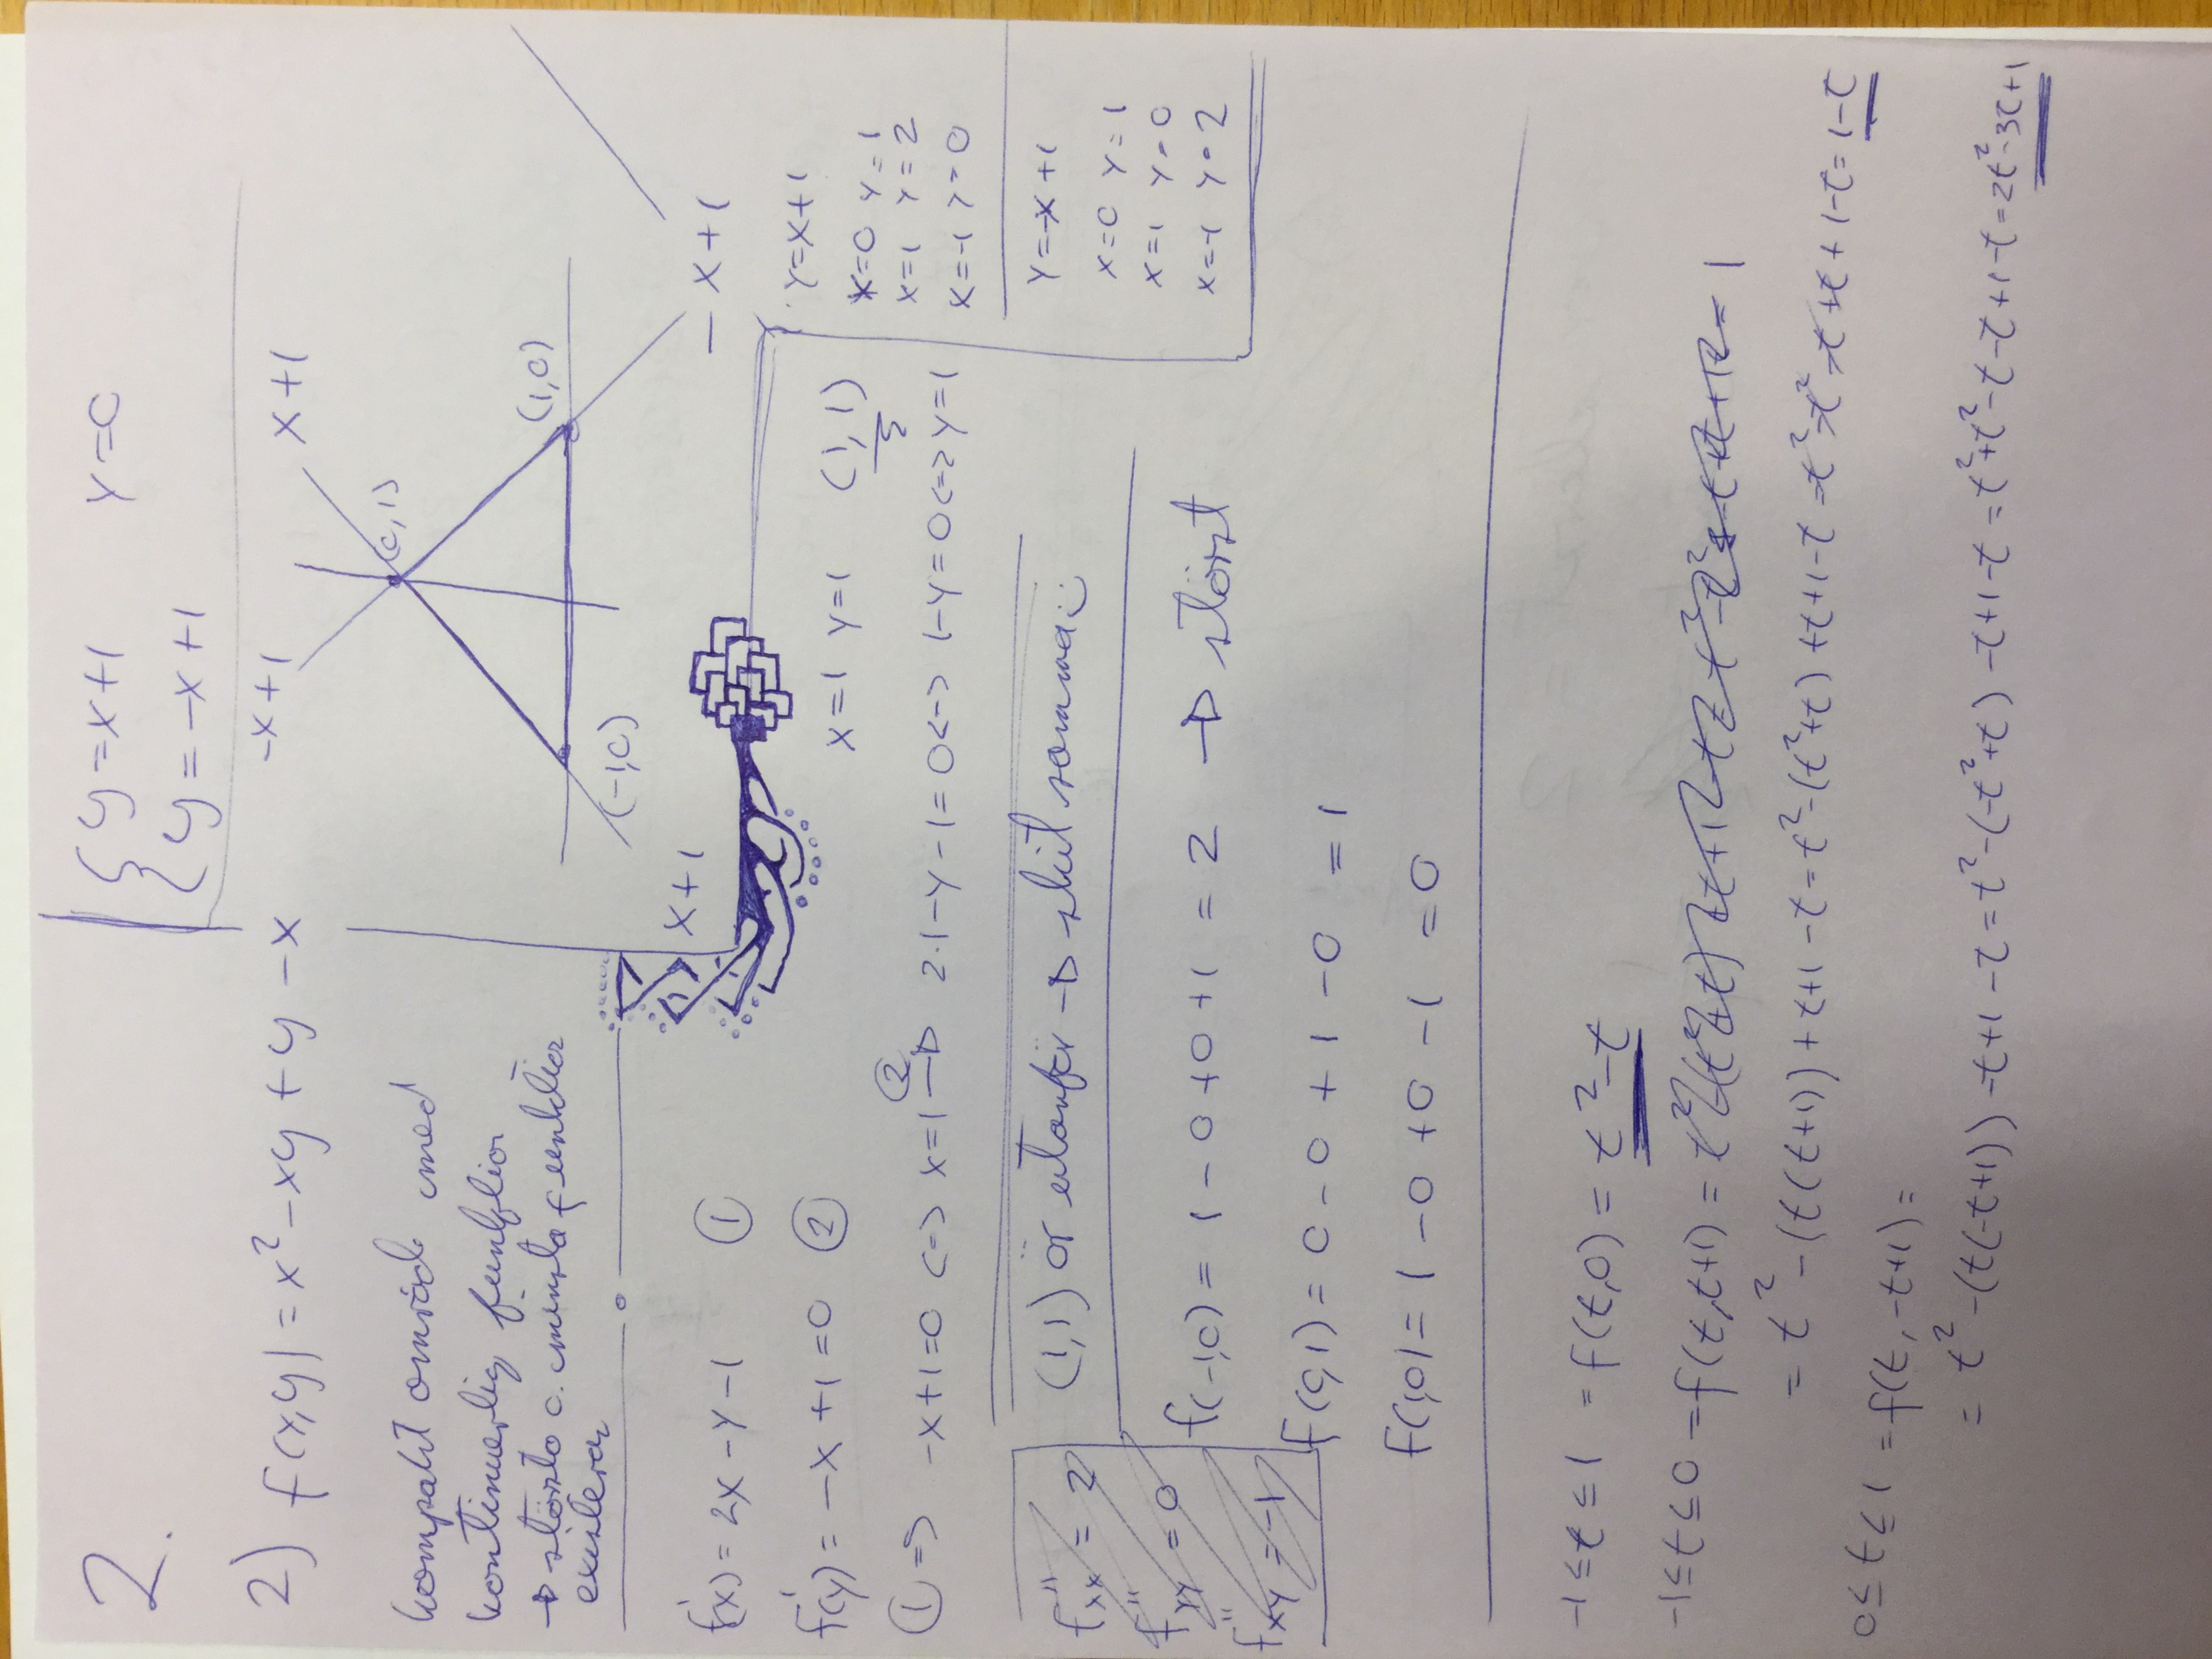 2.
{ y = x+1    y = 0
{ y = -x+1
2) f(x,y) = x² - xy + y - x
-x+1    x+1
(0,1)
(1,0)
(-1,0)
-x+1
kompakt område med
kontinuerlig funktion
→ största o. minsta funktion
existerar
x+1
f'(x) = 2x - y - 1    ①
f'(y) = -x + 1 = 0    ②
x=1 y=1 (1,1)
① => -x+1=0 <=> x=1 ②→ 2·1-y-1=0 <-> 1-y=0 <=> y=1
y=x+1
x=0 y=1
x=1 y=2
x=-1 y=0
y=-x+1
x=0 y=1
x=1 y=0
x=-1 y=2
(1,1) är utanför → skit samma :)
f''xx = 2
f''yy = 0
f''xy = -1
f(-1,0) = 1 - 0 + 0 + 1 = 2 → störst
f(0,1) = 0 - 0 + 1 - 0 = 1
f(1,0) = 1 - 0 + 0 - 1 = 0
-1 ≤ t ≤ 1 = f(t,0) = t² - t
-1 ≤ t ≤ 0 = f(t,t+1) = 1
= t² - (t(t+1)) + t+1 - t = t² - (t²+t) + t+1 - t = t² - t² - t + t + 1 - t = 1-t
0 ≤ t ≤ 1 = f(t,-t+1) =
= t² - (t(-t+1)) - t+1 - t = t² - (-t²+t) - t+1 - t = t²+t² - t - t + 1 - t = 2t² - 3t + 1